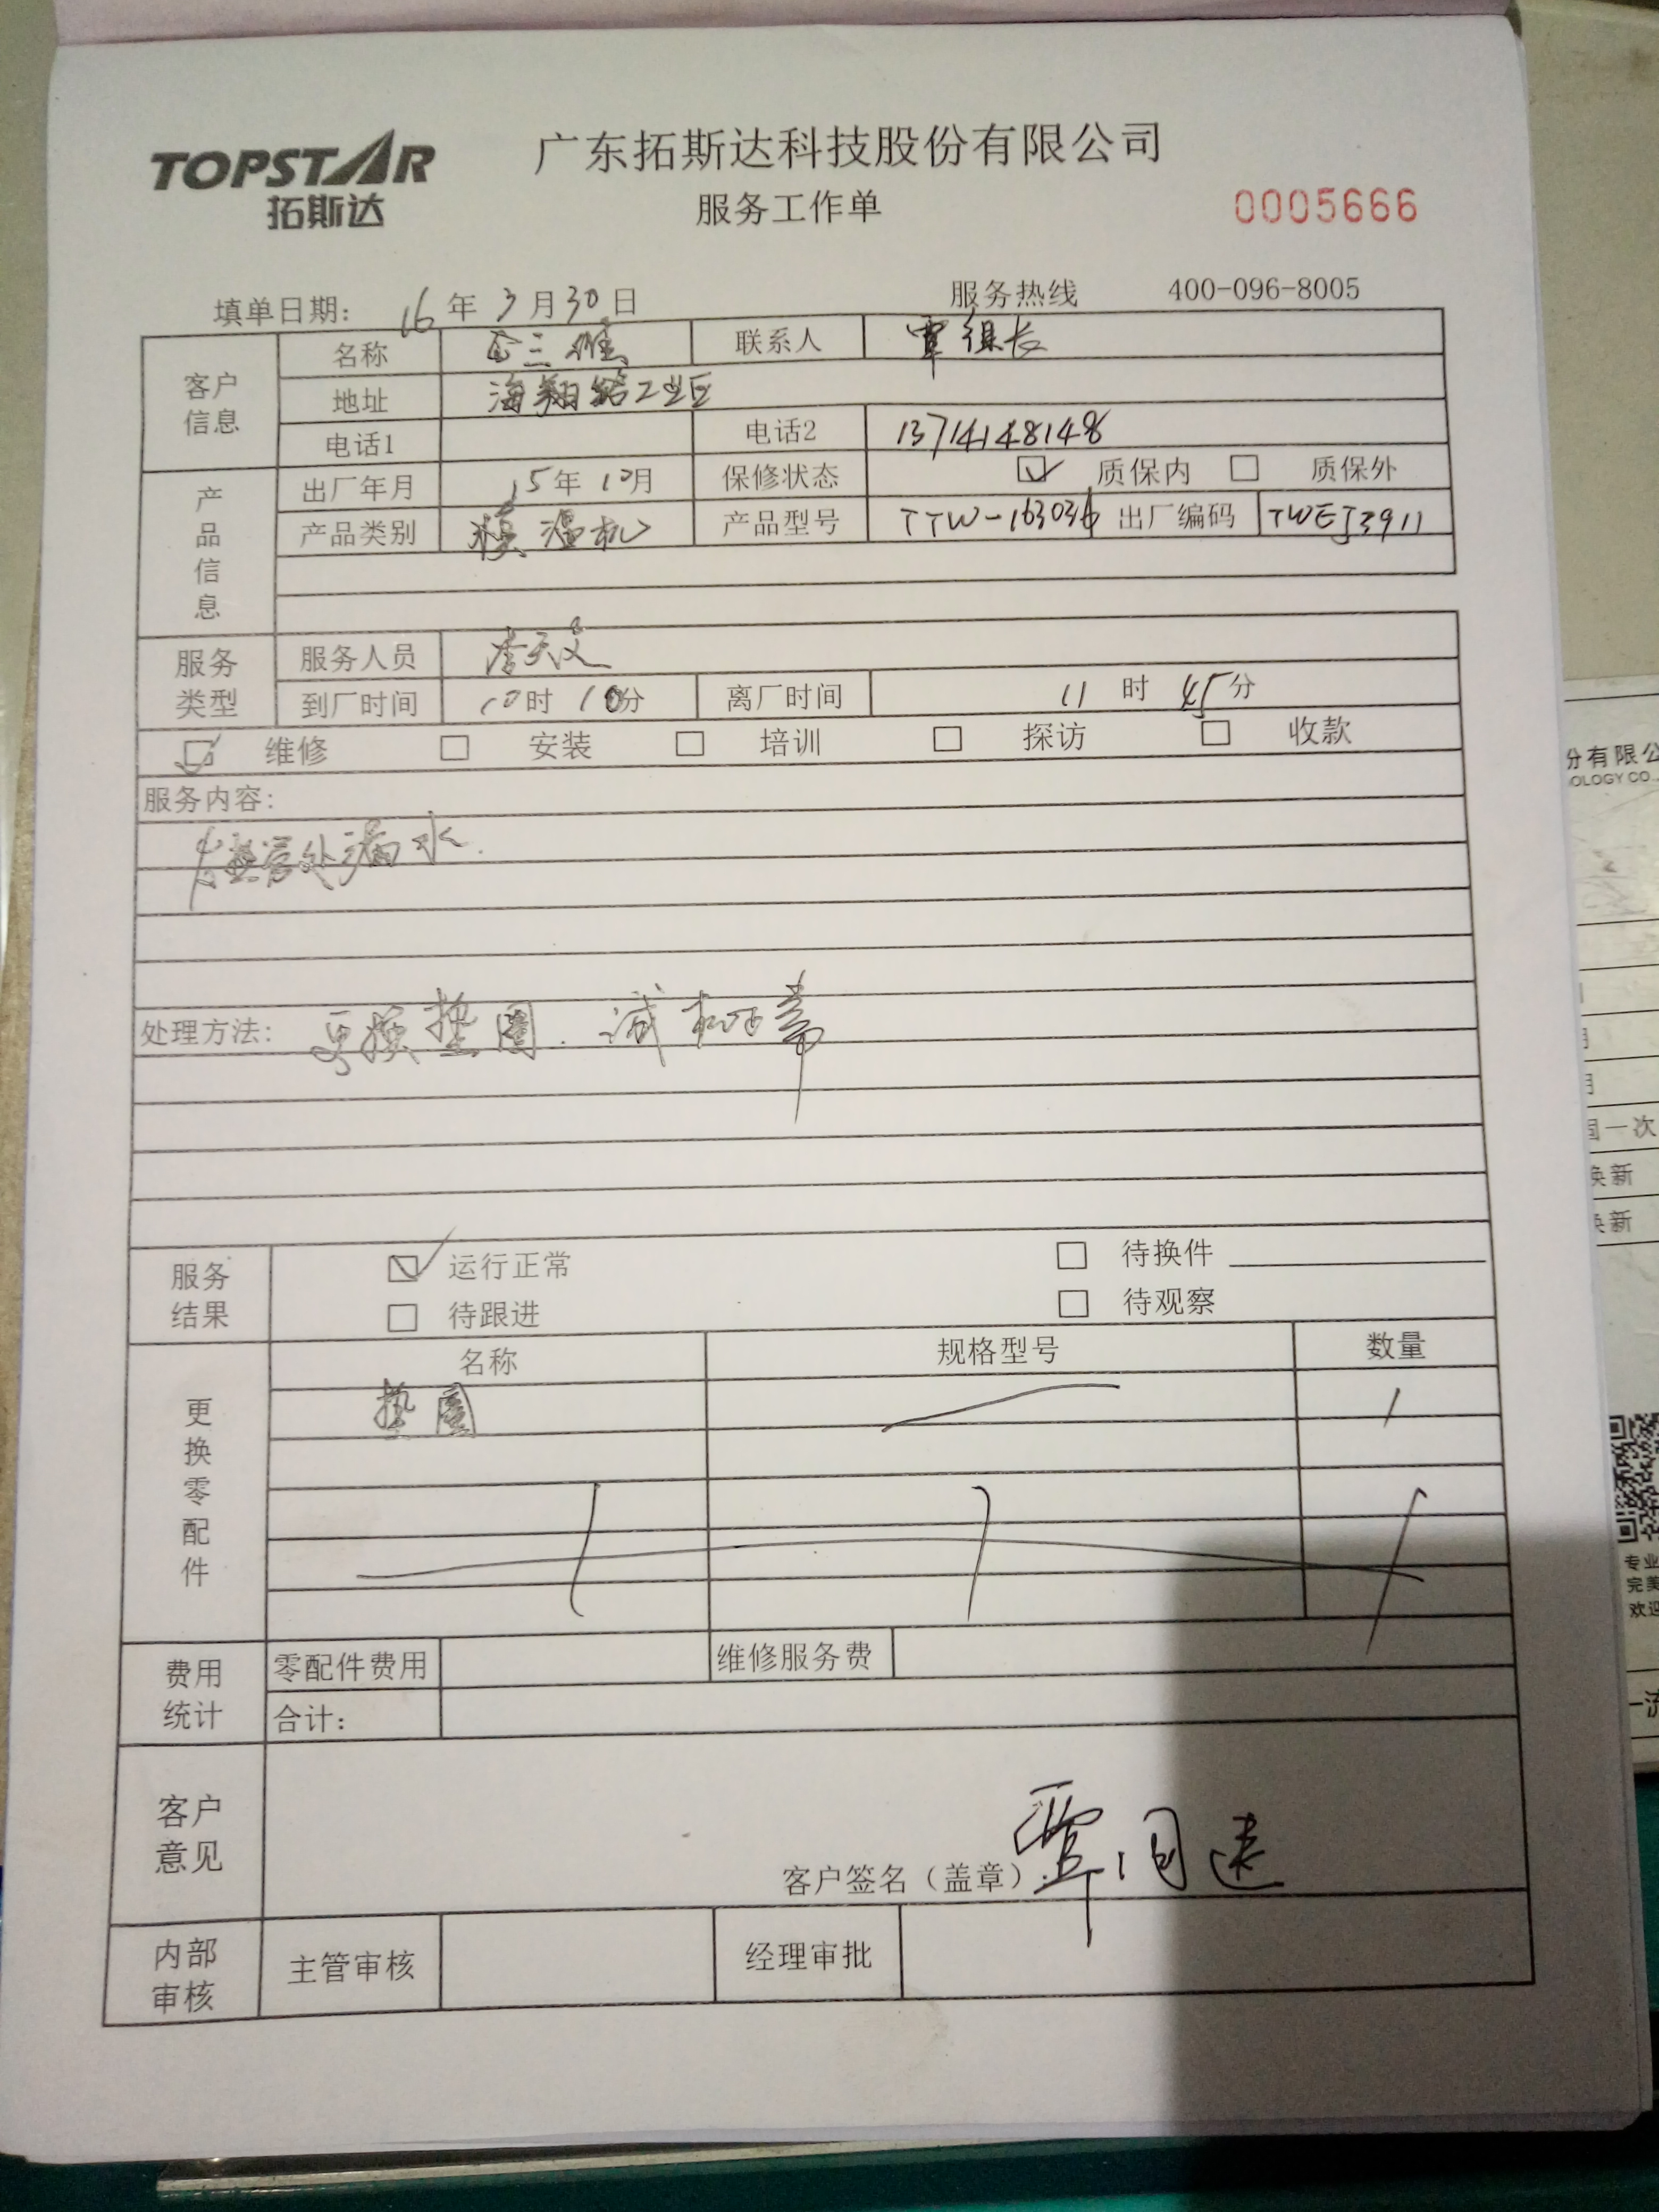 TOPSTAR
拓斯达
广东拓斯达科技股份有限公司
服务工作单
0005666
填单日期: 16 年 3 月 30 日
服务热线 400-096-8005
客户信息
名称 联系人 覃组长
地址 海翔路工业区
电话1 电话2 13714148148
产品信息
出厂年月 15年 10月 保修状态 质保内 质保外
产品类别 模温机 产品型号 TTW-163036 出厂编码 TWEJ3911
服务类型
服务人员 李天文
到厂时间 10时 10分 离厂时间 11 时 45 分
维修 安装 培训 探访 收款
服务内容:
发热管处漏水.
处理方法: 更换垫圈. 试机正常
服务结果
运行正常 待换件
待跟进 待观察
更换零配件
名称 规格型号 数量
垫圈 1
费用统计
零配件费用 维修服务费
合计:
客户意见
客户签名(盖章) 覃
内部审核
主管审核 经理审批
分有限公
OLOGY CO.,
固一次
换新
换新
专业
完美
欢迎
一流